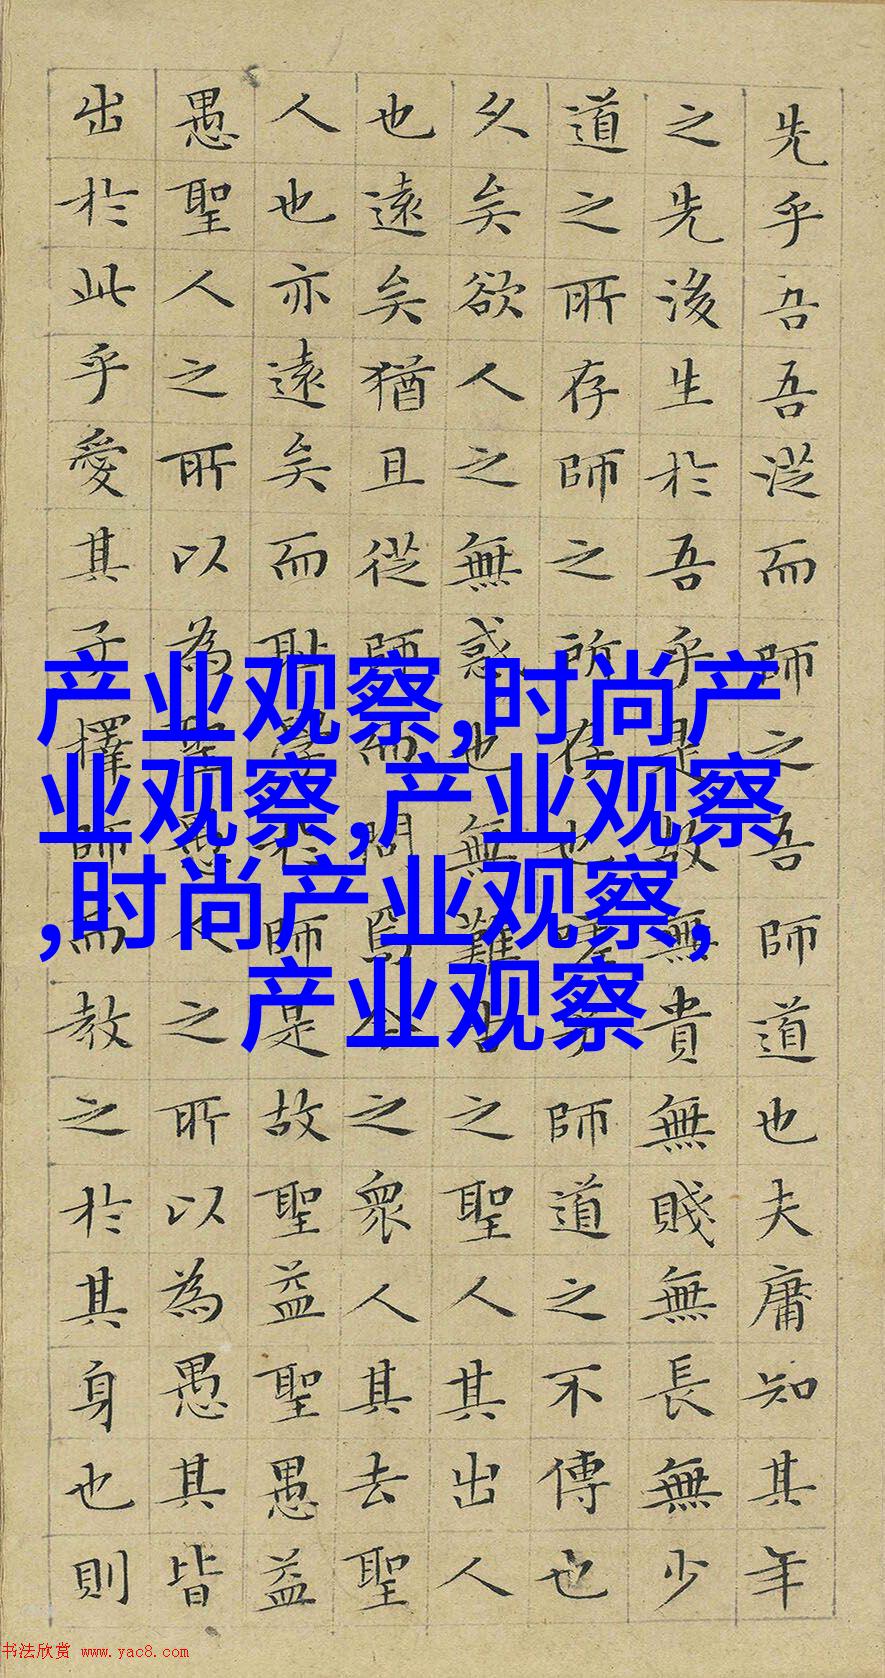 先乎吾吾從而師之吾師道也夫庸知其年
之先後生於吾乎是故無貴無賤無長無少
道之所存師之所存也嗟乎師道之不傳也
久矣欲人之無惑也無難古之聖人其出人
也遠矣猶且從師而問焉今之衆人其去聖
人也亦遠矣而耻學於師是故聖益聖愚益
愚聖人之所以為聖愚人之所以為愚其皆
出於此乎愛其子擇師而教之於其身也則
产业观察,时尚产
业观察,产业观察
,时尚产业观察,
产业观察
书法欣赏 www.yac8.com